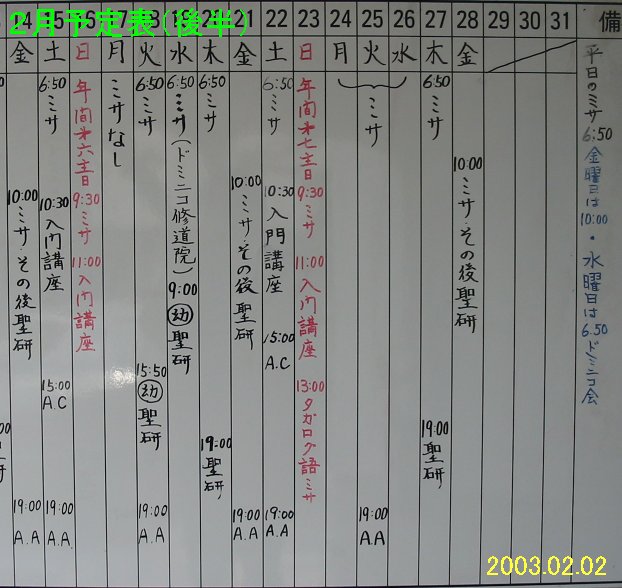 2月予定表(後半)
14 15 16 17 18 19 20 21 22 23 24 25 26 27 28 29 30 31 備
金 土 日 月 火 水 木 金 土 日 月 火 水 木 金
10:00 ミサ・その後聖研
19:00 A.A
6:50 ミサ
10:30 入門講座
15:00 A.C
19:00 A.A.
年間第六主日
9:30 ミサ
11:00 入門講座
ミサなし
6:50 ミサ
15:50 幼 聖研
19:00 A.A
6:50 ミサ(ドミニコ修道院)
9:00 幼 聖研
6:50 ミサ
19:00 聖研
10:00 ミサ・その後聖研
19:00 A.A
6:50 ミサ
10:30 入門講座
15:00 A.C
19:00 A.A
年間第七主日
9:30 ミサ
11:00 入門講座
13:00 タガログ語ミサ
ミサ
19:00 A.A.
6:50 ミサ
19:00 聖研
10:00 ミサ・その後聖研
平日のミサ 6:50
金曜日は 10:00・
水曜日は 6.50 ドミニコ会
2003.02.02